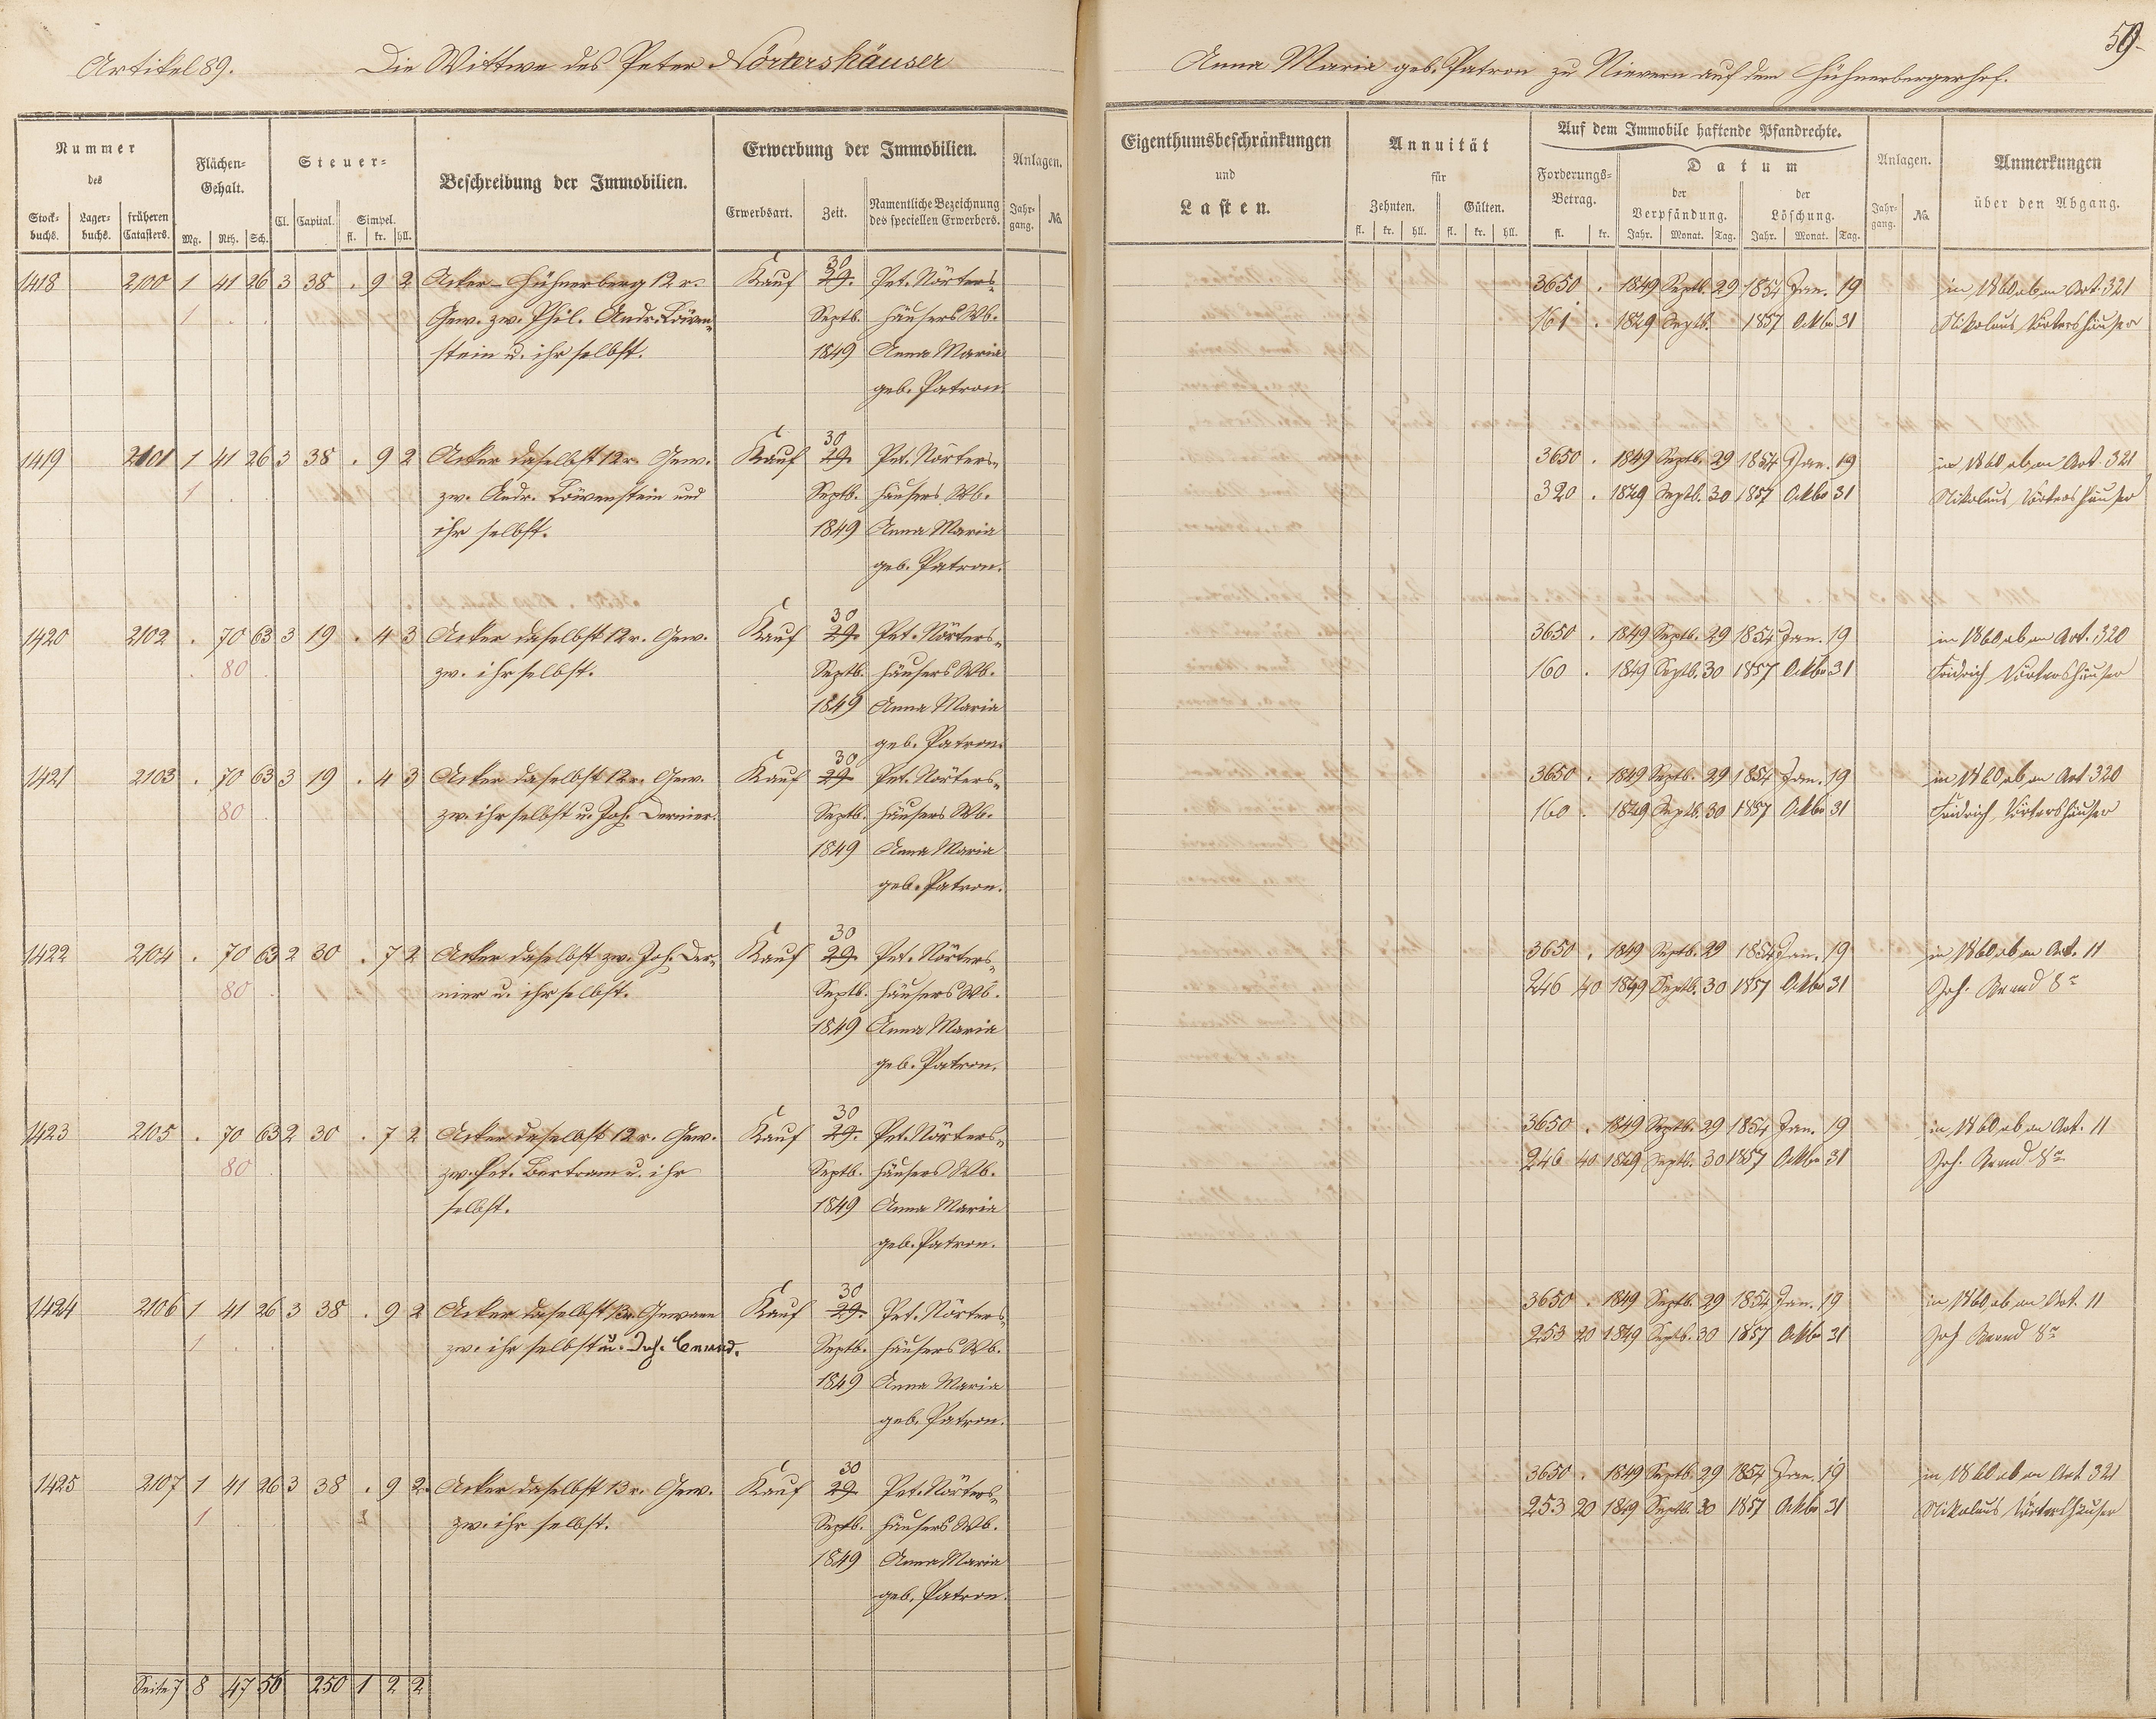 59
Artikel 89. Die Wittwe des Peter Nörtershäuser
Anna Maria geb. Patron zu Nievern auf dem Hühnerbergerhof.
Nummer des
Stock-buchs. Lager-buchs. früheren Catasters.
Flächen-Gehalt.
Mg. Rth. Sch.
Steuer-
Cl. Capital. Simpel.
fl. kr. hll.
Beschreibung der Immobilien.
Erwerbung der Immobilien.
Erwerbsart. Zeit. Namentliche Bezeichnung des speciellen Erwerbers.
Anlagen.
Jahr-gang. No.
Eigenthumsbeschränkungen und Lasten.
Annuität für
Zehnten. Gülten.
fl. kr. hll. fl. kr. hll.
Auf dem Immobile haftende Pfandrechte.
Forderungs-Betrag.
fl. kr.
Datum
der Verpfändung. der Löschung.
Jahr. Monat. Tag. Jahr. Monat. Tag.
Anlagen.
Jahr-gang. No.
Anmerkungen über den Abgang.
30
1418 2100 1 41 26 3 38 . 9 2 Acker-Hühnerberg 12r. Kauf 29. Pet. Nörters- 3650 . 1849 Septb. 29 1854 Jan. 19 in 1860 ab an Art. 321
1 . . Gew. zw. Phil. Andr. Löwen- Septb. häusers Wb. 161 . 1849 Septb. 1857 Oktbr 31 Nikolaus Nörtershäuser
stein u. ihr selbst. 1849 Anna Maria
geb. Patron.
30
1419 2101 1 41 26 3 38 . 9 2 Acker daselbst 12r. Gew. Kauf 29. Pet. Nörters- 3650 . 1849 Septb. 29 1854 Jan. 19 in 1860 ab an Art. 321
1 . . zw. Andr. Löwenstein und Septb. häusers Wb. 320 . 1849 Septb. 30 1857 Oktbr 31 Nikolaus Nörtershäuser
ihr selbst. 1849 Anna Maria
geb. Patron.
30
1420 2102 . 70 63 3 19 . 4 3 Acker daselbst 12r. Gew. Kauf 29. Pet. Nörters- 3650 . 1849 Septb. 29 1854 Jan. 19 in 1860 ab an Art. 320
. 80 . zw. ihr selbst. Septb. häusers Wb. 160 . 1849 Septb. 30 1857 Oktbr 31 Fridrich Nörtershäuser
1849 Anna Maria
geb. Patron.
30
1421 2103 . 70 63 3 19 . 4 3 Acker daselbst 12r. Gew. Kauf 29 Pet. Nörters- 3650 . 1849 Septb. 29 1854 Jan. 19 in 1860 ab an Art 320
80 . zw. ihr selbst u. Joh. Dernier. Septb. häusers Wb. 160 . 1849 Septb. 30 1857 Oktbr 31 Fridrich Nörtershäuser
1849 Anna Maria
geb. Patron.
30
1422 2104 . 70 63 2 30 . 7 2 Acker daselbst zw. Joh. Der- Kauf 29. Pet. Nörters- 3650 . 1849 Septb. 29 1854 Jan. 19 in 1860 ab an Art. 11
80 . nier u. ihr selbst. Septb. häusers Wb. 246 40 1849 Septb. 30 1857 Oktbr 31 Joh.
1849 Anna Maria
geb. Patron.
30
1423 2105 . 70 63 2 30 . 7 2 Acker daselbst 12r. Gew. Kauf 29. Pet. Nörters- 3650 . 1849 Septb. 29 1854 Jan. 19 in 1860 ab an Art. 11
80 . zw. Pet. Bertram u. ihr Septb. häusers Wb. 246 40 1849 Septb. 30 1857 Oktbr 31 Joh.
selbst. 1849 Anna Maria
geb. Patron.
30
1424 2106 1 41 26 3 38 . 9 2 Acker daselbst 13r. Gewann Kauf 29. Pet. Nörters- 3650 . 1849 Septb. 29 1854 Jan. 19 in 1860 ab an Art. 11
1 . . zw. ihr selbst u. Joh. Septb. häusers Wb. 253 20 1849 Septb. 30 1857 Oktbr 31 Joh
1849 Anna Maria
geb. Patron.
30
1425 2107 1 41 26 3 38 . 9 2 Acker daselbst 13r. Gew. Kauf 29. Pet. Nörters- 3650 . 1849 Septb. 29 1854 Jan. 19 in 1860 ab an Art 321
1 . . zw. ihr selbst. Septb. häusers Wb. 253 20 1849 Septb. 30 1857 Oktbr 31 Nikolaus Nörtershäuser
1849 Anna Maria
geb. Patron.
Seite 7 8 47 56 250 1 2 2